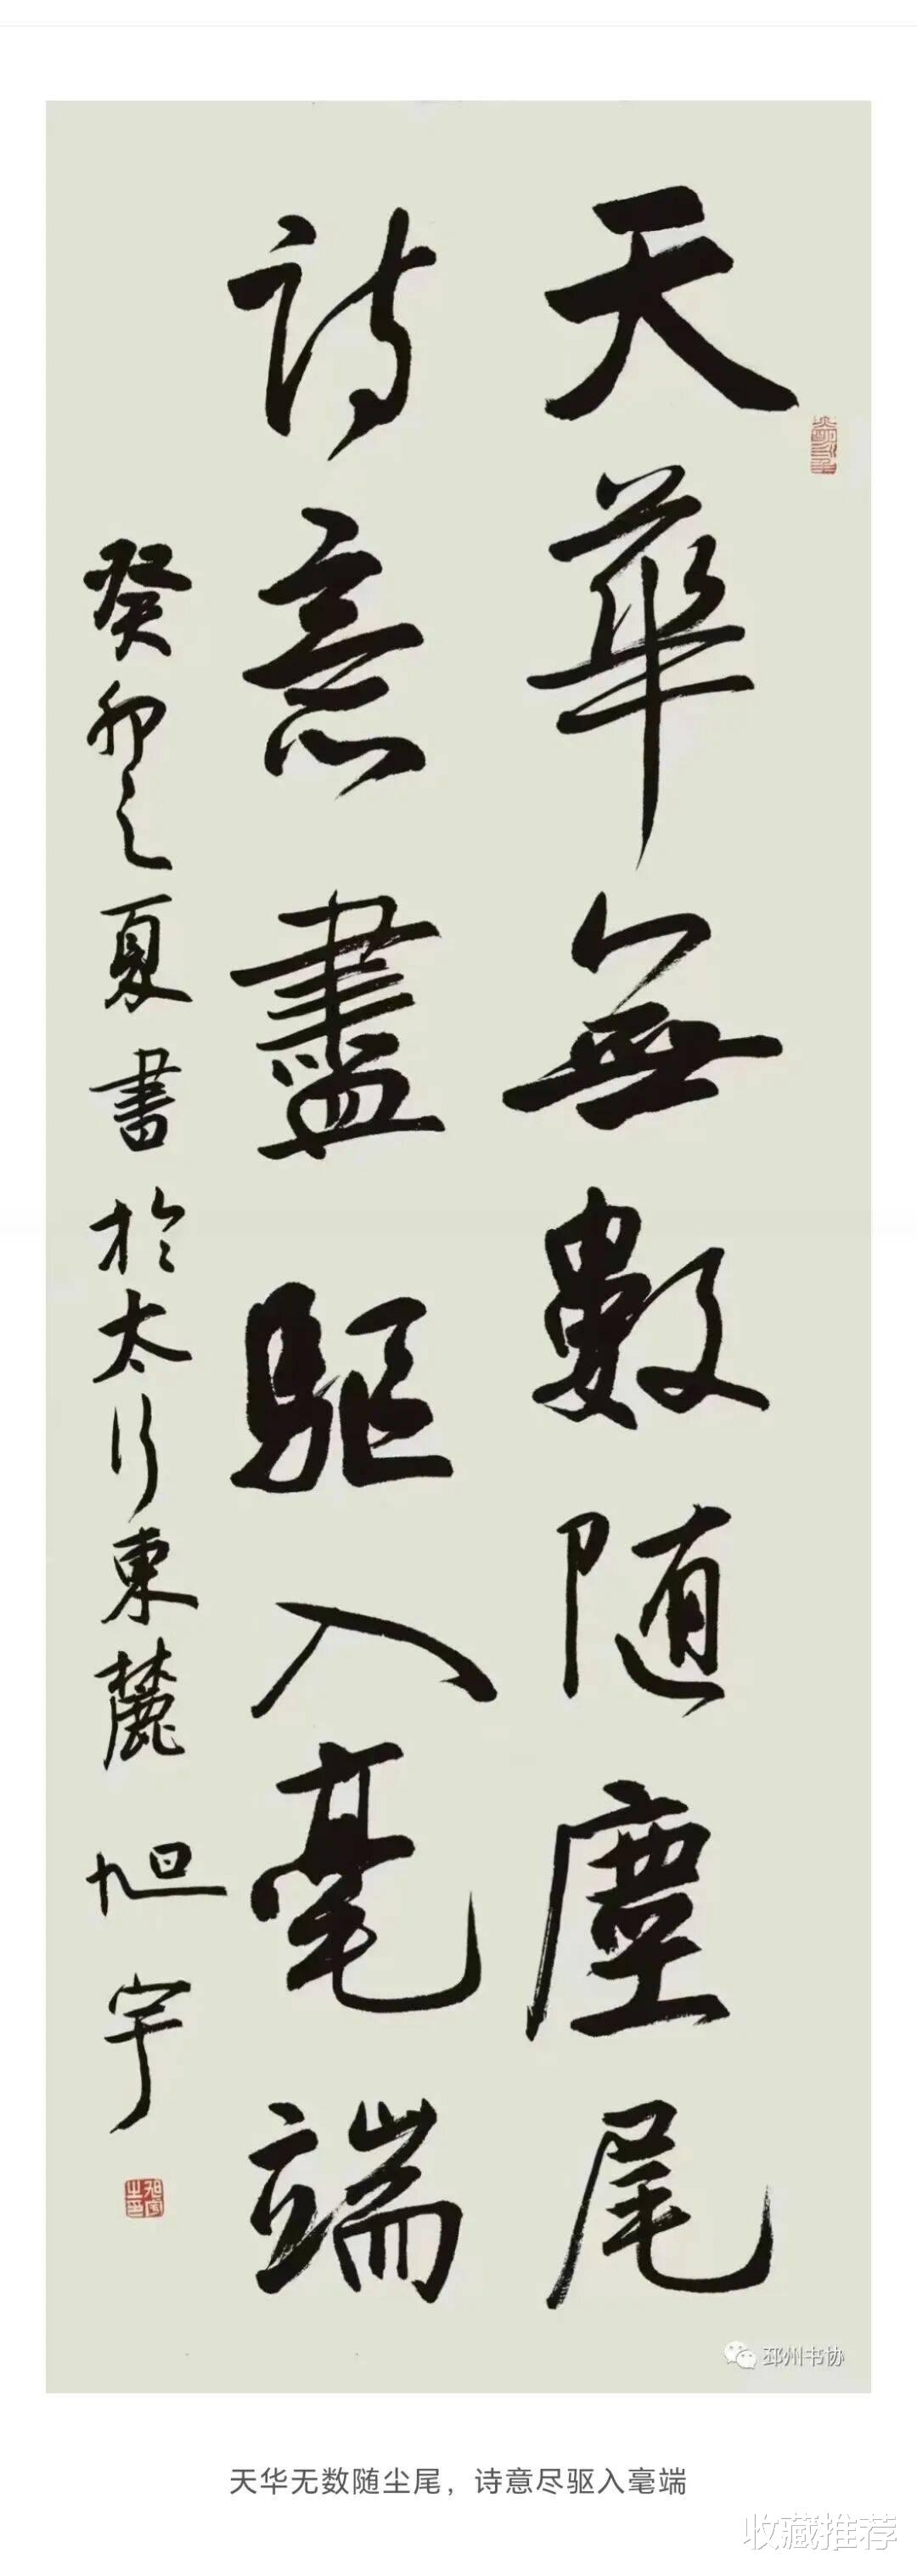 天華無數随塵尾
詩意盡驱入毫端
癸卯之夏書於太行東麓 旭宇
旭宇之印
邳州书协
天华无数随尘尾，诗意尽驱入毫端
收藏推荐